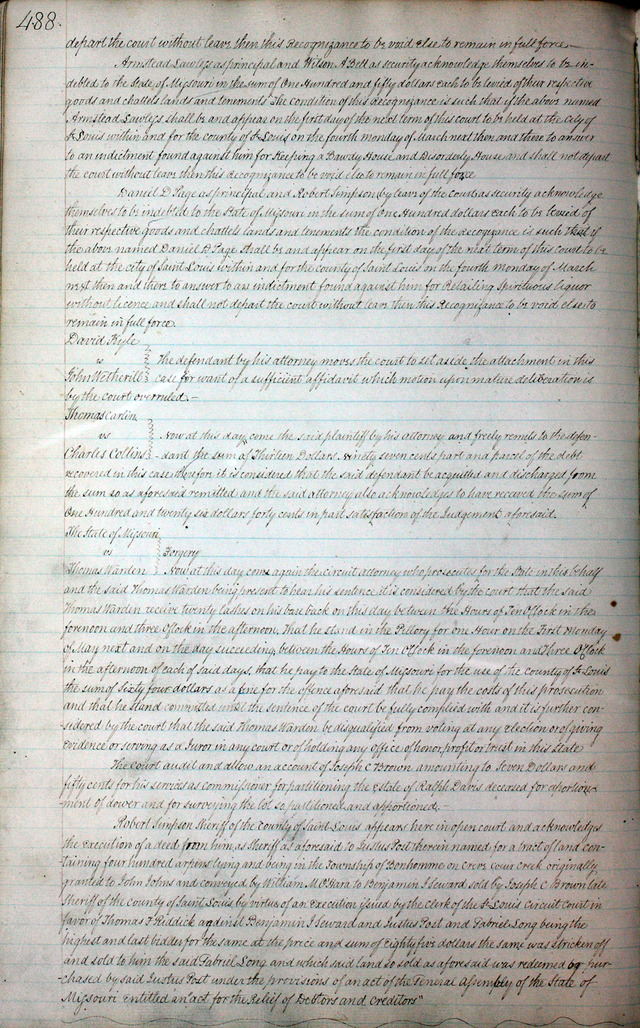 488
depart the court without leave then this Recognizance to be void else to remain in full force —
Armstead Lawless as principal and Wilson A Bell as security acknowledge themselves to be in-
debted to the State of Missouri in the sum of One Hundred and fifty dollars each to be levied of their respective
goods and chattels lands and tenements The condition of this recognizance is such that if the above named
Armstead Lawless shall be and appear on the first day of the next term of this court to be held at the city of
St Louis within and for the county of St Louis on the fourth monday of March next then and there to answer
to an indictment found against him for Keeping a Bawdy House and Disorderly House and shall not depart
the court without leave then this Recognizance to be void else to remain in full force
Daniel D. Page as principal and Robert Simpson (by leave of the court) as security acknowledge
themselves to be indebted to the State of Missouri in the sum of one Hundred dollars each to be levied of
their respective goods and chattels lands and tenements the condition of the recognizance is such that if
the above named Daniel D. Page shall be and appear on the first day of the next term of this court to be
held at the city of Saint Louis within and for the county of Saint Louis on the fourth monday of March
next then and there to answer to an indictment found against him for Retailing Spirituous liquor
without licence and shall not depart the court without leave then this Recognizance to be void else to
remain in full force.
David Kyle
vs
The defendant by his attorney moves the court to set aside the attachment in this
John Wetherill case for want of a sufficient affidavit which motion upon mature deliberation is
by the court overruled. —
Thomas Carlin
vs Now at this day come the said plaintiff by his attorney and freely remits to the defen-
Charles Collins dant the sum of Thirteen Dollars ninety seven cents part and parcel of the debt
recovered in this case therefore it is considered that the said defendant be acquitted and discharged from
the sum so as aforesaid remitted and the said attorney also acknowledges to have received the sum of
One Hundred and twenty six dollars forty cents in part satisfaction of the Judgement aforesaid.
The State of Missouri
vs Forgery
Thomas Warden Now at this day come again the circuit attorney who prosecutes for the State in this behalf
and the said Thomas Warden being present to hear his sentence it is considered by the court that the said
Thomas Warden receive twenty lashes on his bare back on this day between the Hours of Ten Oclock in the
forenoon and three Oclock in the afternoon, that he stand in the Pillory for one Hour on the First Monday
of May next and on the day succeeding, between the Hours of Ten Oclock in the forenoon and Three Oclock
in the afternoon of each of said days, that he pay to the State of Missouri for the use of the county of St Louis
the sum of sixty four dollars as a fine for the offence aforesaid that he pay the costs of this prosecution
and that he stand committed until the sentence of the court be fully complied with and it is further con-
sidered by the court that the said Thomas Warden be disqualified from voting at any election or of giving
evidence or serving as a Juror in any court or of holding any office of honor, profit or trust in this State
The Court audit and allow an account of Joseph C Brown amounting to Seven Dollars and
fifty cents for his services as commissioner for partitioning the estate of Ralph Davis deceased for apportion-
ment of dower and for surveying the lot so partitioned and apportioned. —
Robert Simpson Sheriff of the county of Saint Louis appears here in open court and acknowledges
the execution of a deed from him as sheriff as aforesaid to Justus Post therein named for a tract of land con-
taining four hundred arpens lying and being in the Township of Bonhomme on creve coeur creek originally
granted to John Johns and conveyed by William McHara to Benjamin J Seward sold by Joseph C Brown late
Sheriff of the county of Saint Louis by virtue of an Execution issued by the clerk of the St Louis Circuit court in
favor of Thomas F Riddick against Benjamin J Seward and Justus Post and Gabriel Long being the
highest and last bidder for the same at the price and sum of eighty five dollars the same was stricken off
and sold to him the said Gabriel Long and which said land so sold as aforesaid was redeemed by pur-
-chased by said Justus Post under the provisions of an act of the General Assembly of the State of
Missouri entitled an "act for the Relief of Debtors and creditors"